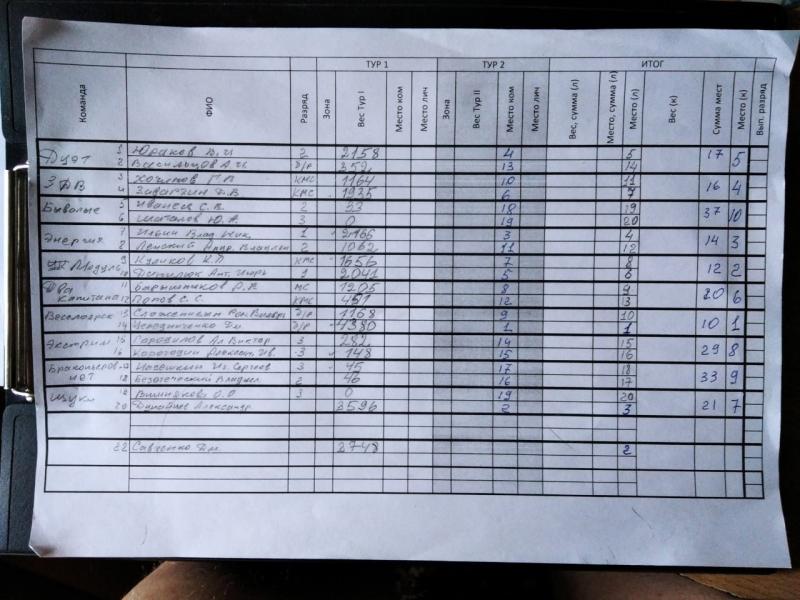 ТУР 1 ТУР 2 ИТОГ
Команда ФИО Разряд Зона Вес Тур I Место ком Место лич Зона Вес Тур II Место ком Место лич Вес, сумма (л) Место, сумма (л) Место (л) Вес (к) Сумма мест Место (к) Вып. разряд
Дуэт 1 Юраков В.И 2 2158 4 5 17 5
2 Васильцов А.И б/р 352 13 14
ЗДВ 3 КМС 1164 10 11 16 4
4 КМС 1935 6 7
Бывалые 5 Иванец С.В. 2 33 18 19 37 10
6 Шаталов Ю.А 3 0 19 20
Энергия 7 Ильин Влад. Ник. 1 2166 3 4 14 3
8 Ленский 2 1062 11 12
Модуль 9 Куликов КМС 1656 7 8 12 2
10 1 2041 5 6
Два капитана 11 Барышников МС 1205 8 9 20 6
12 Попов С.С. КМС 451 12 13
Веселогорск 13 б/р 1168 9 10 10 1
14 б/р 4380 1 1
Экстрим 15 Ал. Виктор 3 282 14 15 29 8
16 Карагодин Александ. Ив. 3 148 15 16
17 3 45 17 18 33 9
нет 18 2 46 16 17
Щуки 19 3 0 19 20 21 7
20 Александр 3596 2 3
22 Савченко Дм. 2748 2